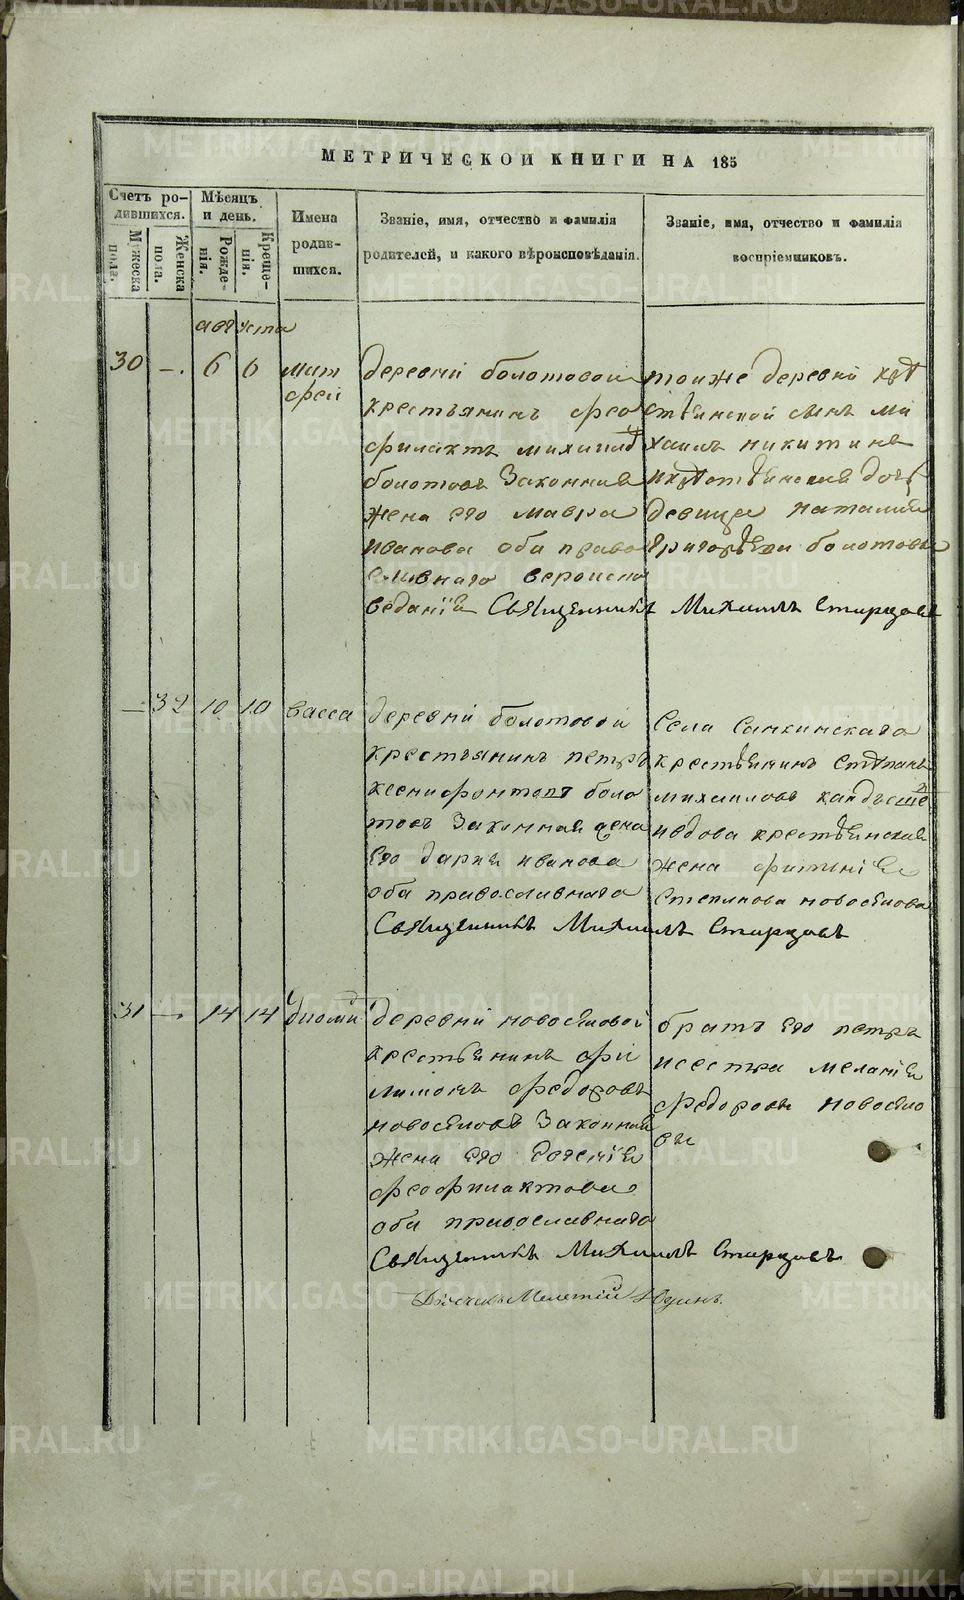 МЕТРИЧЕСКОЙ КНИГИ НА 185
Счетъ ро-
дившихся.
Мужеска
пола.
Женска
пола.
Мѣсяцъ
и день.
Рожде-
нія.
Креще-
нія.
Имена
родив-
шихся.
Званіе, имя, отчество и фамилія
родителей, и какого вѣроисповѣданія.
Званіе, имя, отчество и фамилія
воспріемниковъ.
августа
30 —. 6 6 мат
фей
деревни болотовой
крестьянинъ фео
филактъ михаил
болотовъ Законная
жена его мавра
иванова оба право
славнаго вероиспо
веданія Священникъ Михаилъ Старцовъ
тоиже деревни
сынъ ми
хаилъ никитинъ
девица наталия
болотовы
— 32 10 10 васса
деревни болотовой
крестьянинъ петръ
ксенофонтовъ боло
товъ Законная жена
его дария иванова
оба православнаго
Священникъ Михаилъ Старцовъ
Села Санкинскаго
крестьянинъ степанъ
михаиловъ
жена фитиния
Степанова новосёлова
31 —. 14 14 диомид
деревни новосёловой
крестьянинъ фи
лимонъ федоровъ
новосёловъ Законная
жена его евгения
феофилактова
оба православнаго
Священникъ Михаилъ Старцовъ
братъ его петръ
исестра мелания
федоровы новосёло
вы
Дьячекъ Мелетій Юдинъ.
METRIKI.GASO-URAL.RU